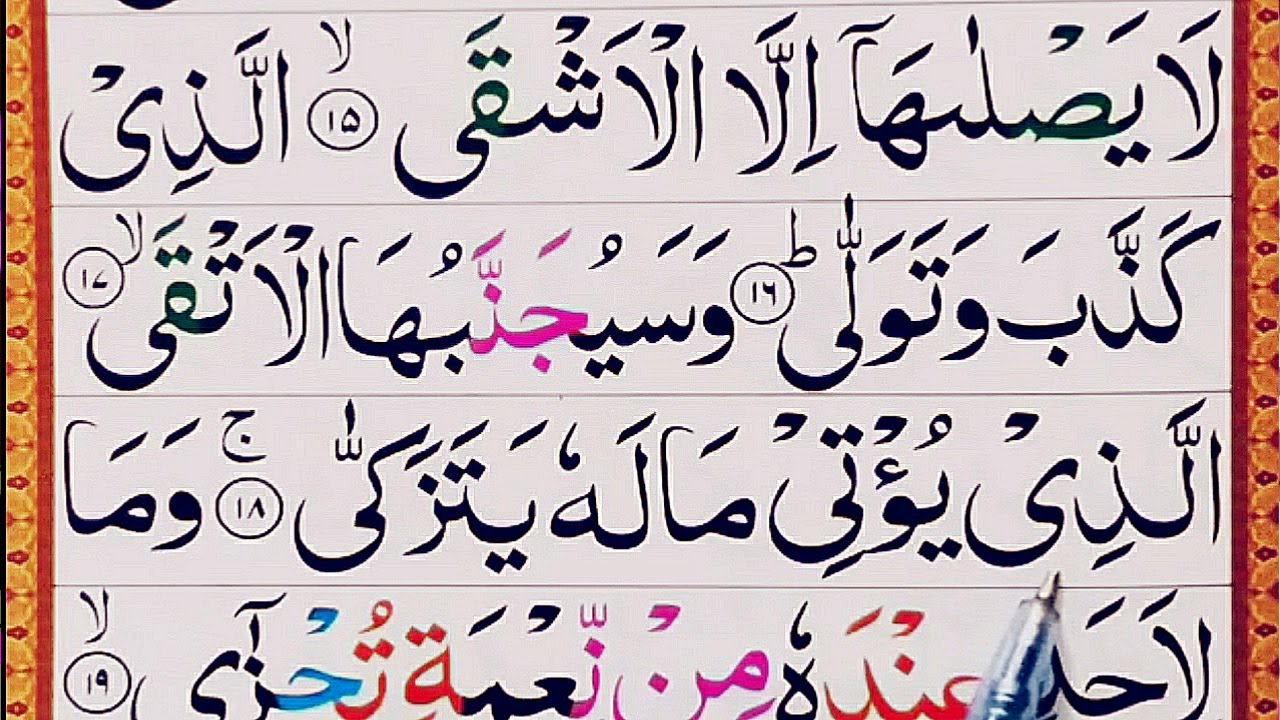 لَا يَصْلٰىهَاۤ اِلَّا الْاَشْقَى ۙ﴿۱۵﴾ الَّذِىْ
كَذَّبَ وَتَوَلّٰى ؕ﴿۱۶﴾ وَسَيُجَنَّبُهَا الْاَتْقَى ۙ﴿۱۷﴾
الَّذِىْ يُؤْتِىْ مَالَهٗ يَتَزَكّٰى ۚ﴿۱۸﴾ وَمَا
لِاَحَدٍ عِنْدَهٗ مِنْ نِّعْمَةٍ تُجْزٰۤى ۙ﴿۱۹﴾